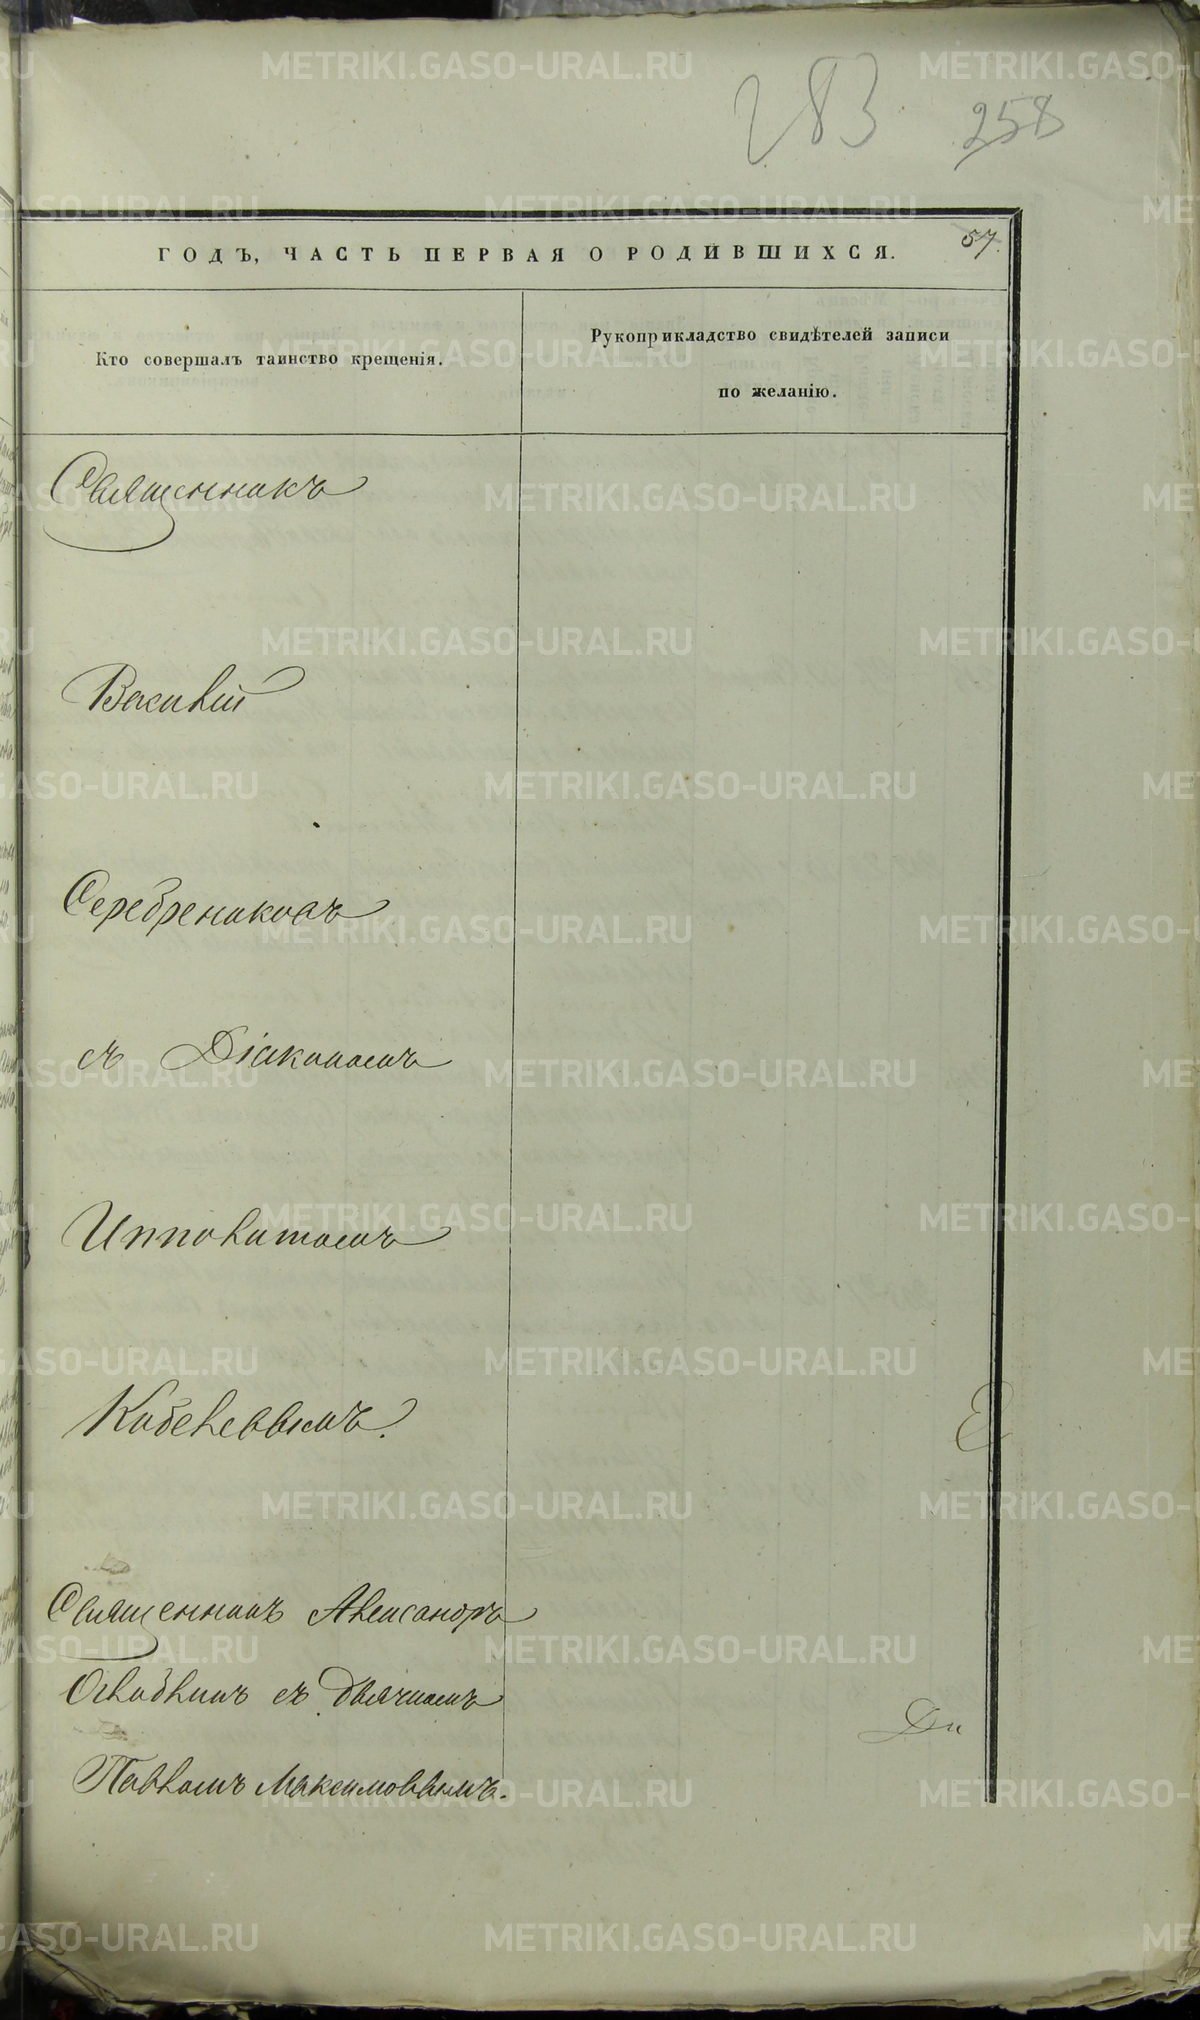 283 258
57.
ГОДЪ, ЧАСТЬ ПЕРВАЯ О РОДИВШИХСЯ.
Кто совершалъ таинство крещенія.
Рукоприкладство свидѣтелей записи
по желанію.
Священникъ
Василій
Серебрениковъ
съ Діакономъ
Ипполитомъ
Кобелевымъ.
Священникъ Александръ
съ Дьячкомъ
Павломъ Максимовымъ.
METRIKI.GASO-URAL.RU